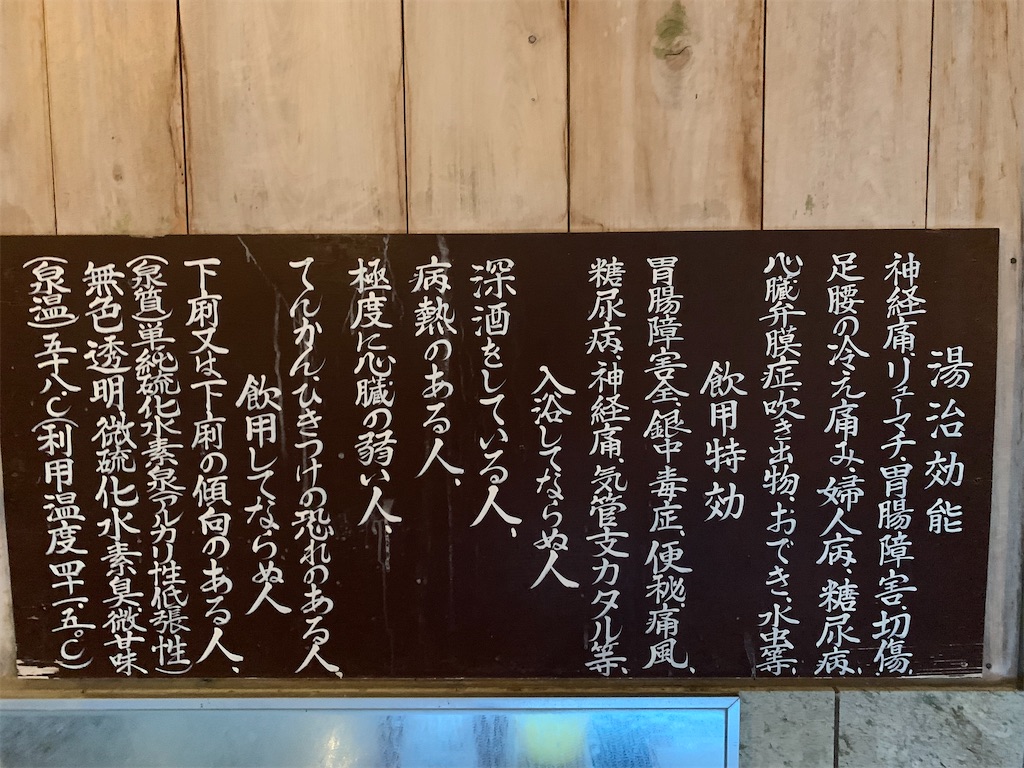 湯治効能
神経痛、リューマチ、胃腸障害、切傷、
足腰の冷え痛み、婦人病、糖尿病、
心臓弁膜症、吹き出物、おでき、水虫等、
飲用特効
胃腸障害全、銀中毒症、便秘、痛風、
糖尿病、神経痛、気管支カタル等、
入浴してならぬ人
深酒をしている人、
病熱のある人、
極度に心臓の弱い人
てんかん、ひきつけの恐れのある人、
飲用してならぬ人
下痢又は下痢の傾向のある人、
(泉質)単純硫化水素泉(アルカリ性低張性)
無色透明、微硫化水素臭、微甘味
(泉温)五十八℃(利用温度四十一.五℃)